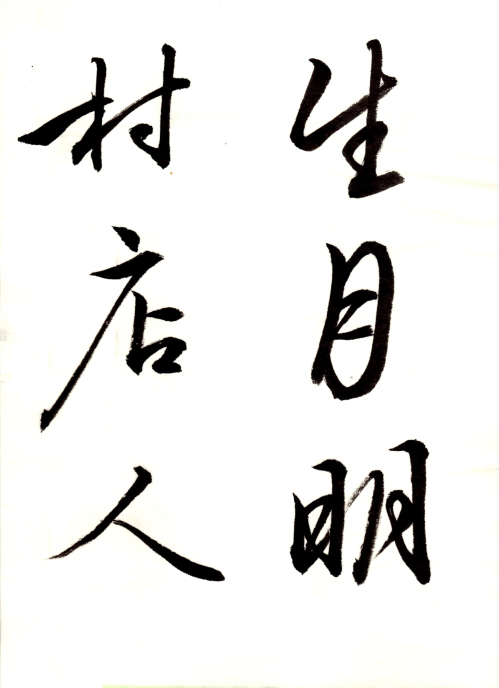 生月明
村店人